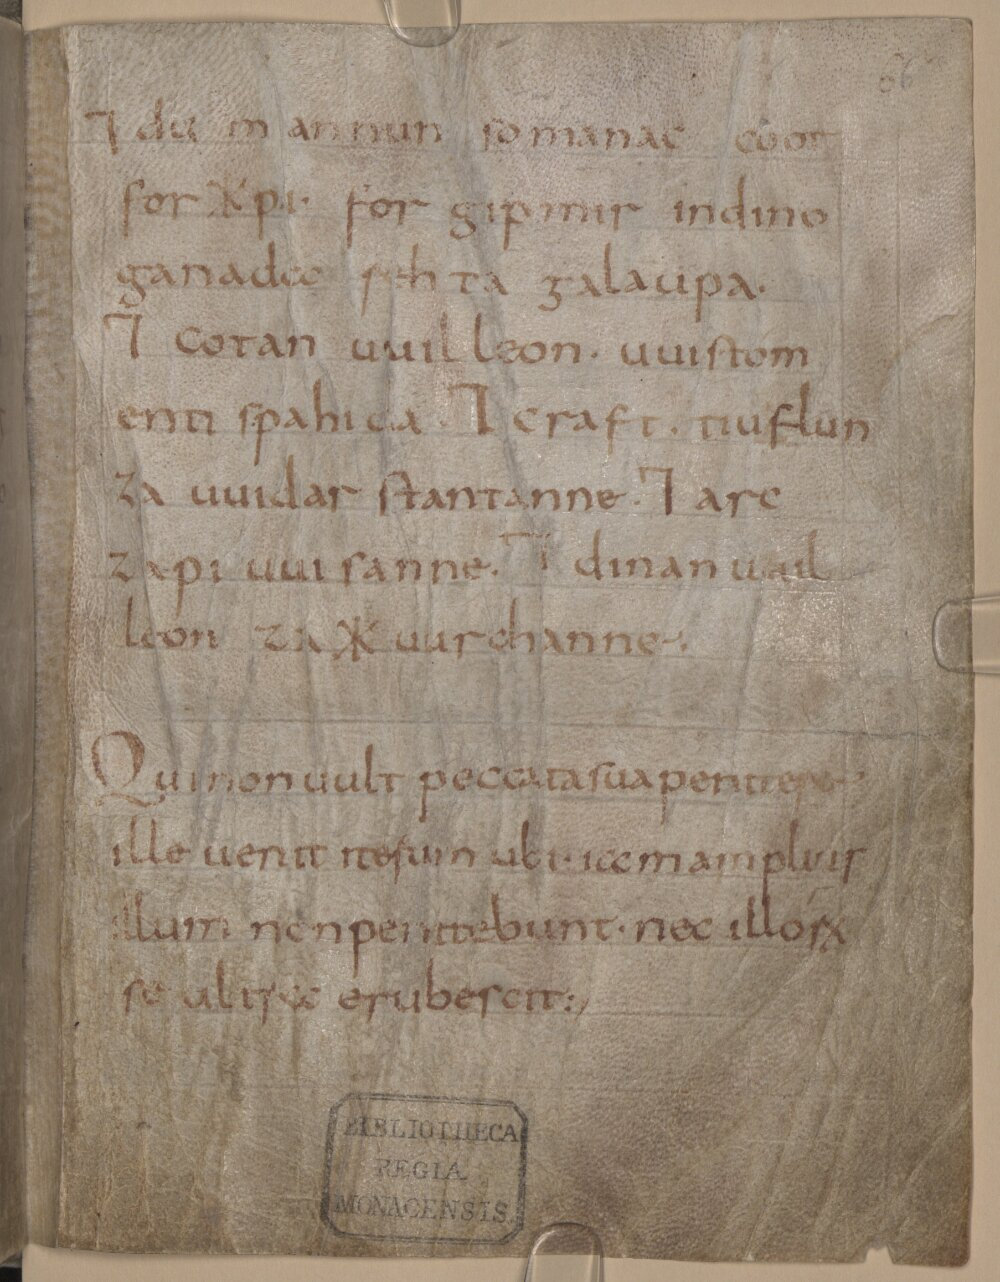 66
⁊ du mannun so manac coot
for ᚼpi. for gip mir in dino
ganada rehta galaupa.
⁊ cotan uuilleon. uuistom
enti spahida. ⁊ craft. tiuflun
za uuidar stantanne. ⁊ arc
za pi uuisanne. ⁊ dinan uuil
leon za ᚼuurchanne.
Qui non uult peccata sua penitere
ille uenit iterum ubi. iam amplius
illum non penitebunt. nec illorꝝ
se ultra erubescit:,
BIBLIOTHECA
REGIA
MONACENSIS.